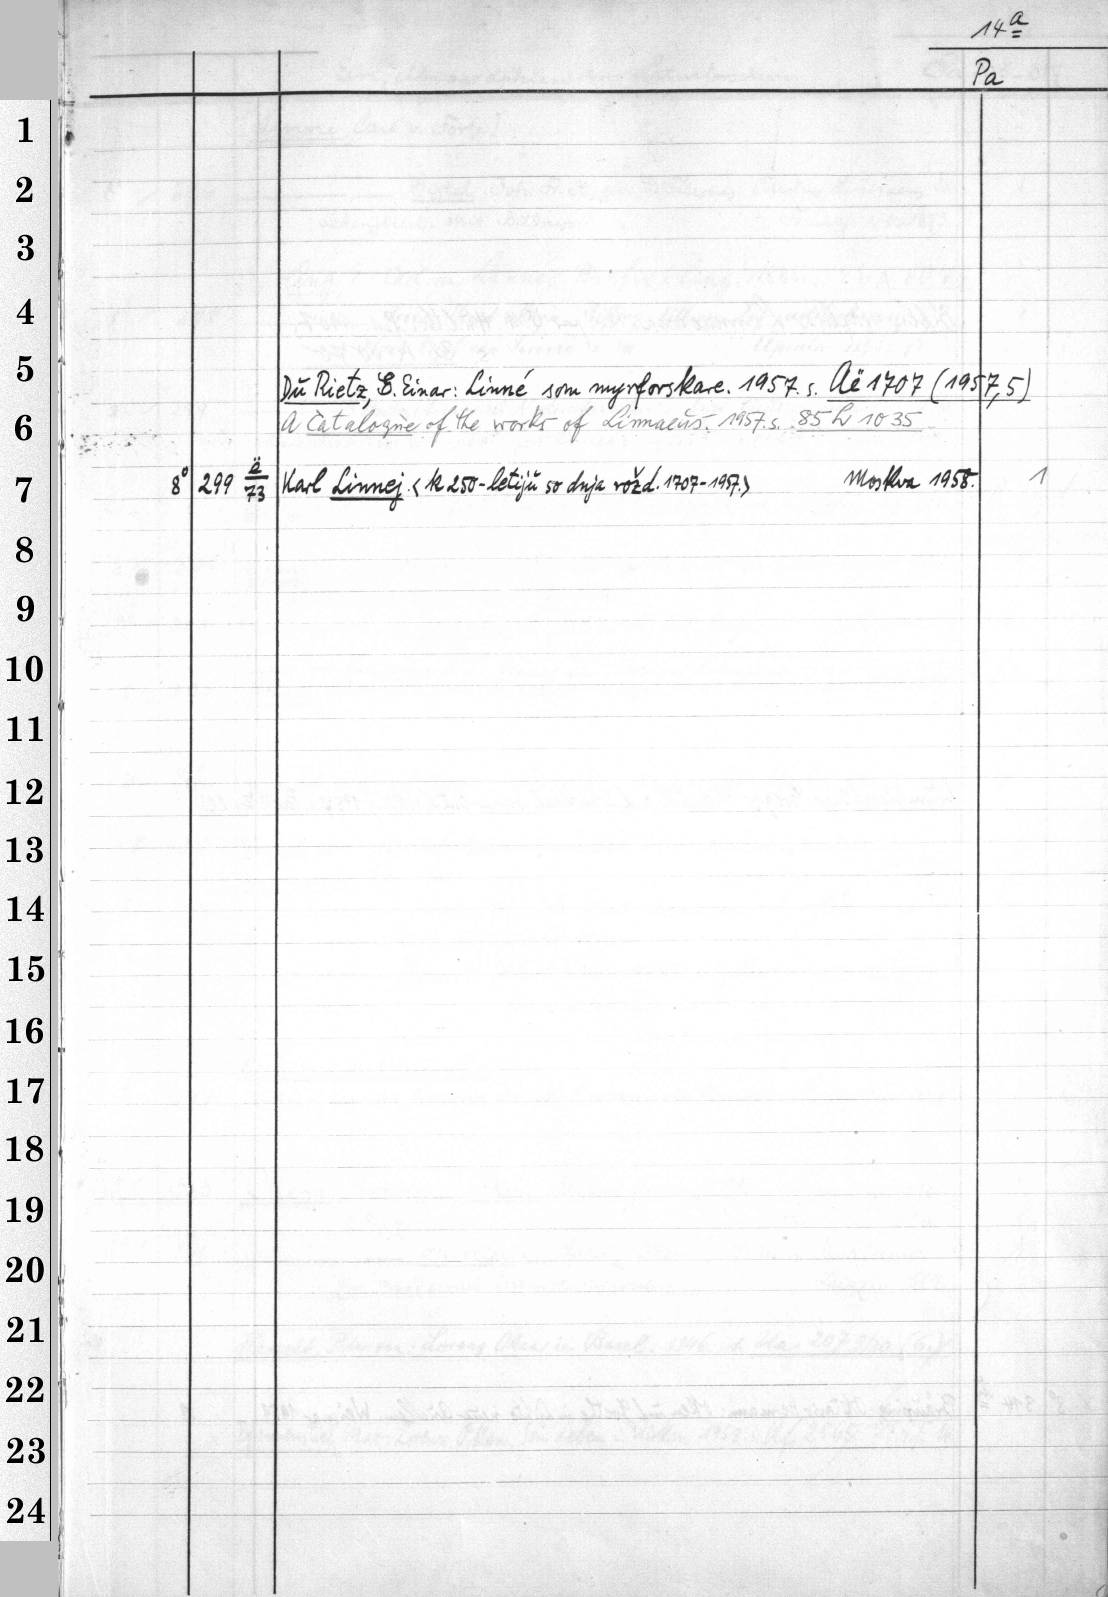 14 a
Pa
1
2
3
4
5
Du Rietz, G. Einar: Linné som myrforskare. 1957. s. Aë 1707 (1957,5)
6
A Catalogue of the works of Linnaeus. 1957. s. 85 L 1035
7 8° 299 ä/73 Karl Linnej <k 250-letiju so dnja rožd. 1707-1957.> Moskva 1958. 1
8
9
10
11
12
13
14
15
16
17
18
19
20
21
22
23
24